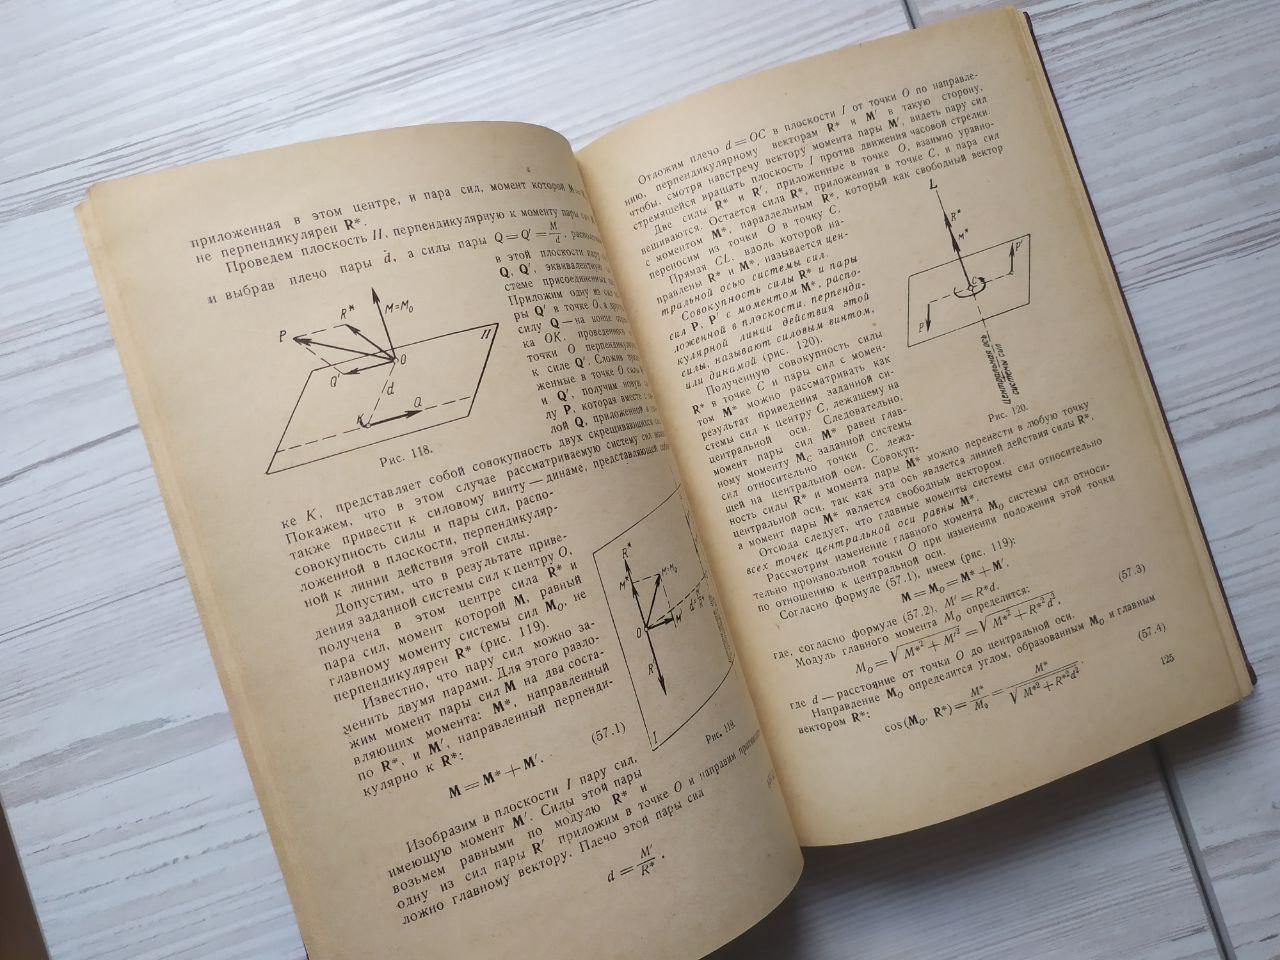 приложенная в этом центре, и пара сил, момент которой
не перпендикулярен R*.
Проведем плоскость II, перпендикулярную к моменту пары сил
и выбрав плечо пары d, а силы пары Q = Q' = M/d,
в этой плоскости пару
Q, Q', эквивалентную
стеме присоединенных
Приложим одну из сил
ры Q' в точке O, а
силу Q — на конце
ка OK, проведенного
точки O перпендикулярно
к силе Q'. Сложив
женные в точке O силы
и Q', получим новую
лу P, которая вместе с
лой Q, приложенной в
P
R*
M=M₀
II
O
Q'
d
K
Q
Рис. 118.
ке K, представляет собой совокупность двух скрещивающихся
Покажем, что в этом случае рассматриваемую систему сил
также привести к силовому винту — динаме, представляющей
совокупность силы и пары сил, распо-
ложенной в плоскости, перпендикуляр-
ной к линии действия этой силы.
Допустим, что в результате приве-
дения заданной системы сил к центру O,
получена в этом центре сила R* и
пара сил, момент которой M, равный
главному моменту системы сил M₀, не
перпендикулярен R* (рис. 119).
Известно, что пару сил можно за-
менить двумя парами. Для этого разло-
жим момент пары сил M на два соста-
вляющих момента: M*, направленный
по R*, и M', направленный перпенди-
кулярно к R*:
M = M* + M'. (57.1)
R*
M*
M=M₀
O
M'
R'
I
Рис. 119.
Изобразим в плоскости I пару сил,
имеющую момент M'. Силы этой пары
возьмем равными по модулю R* и
одну из сил пары R' приложим в точке O и направим
ложно главному вектору. Плечо этой пары сил
d = M'/R*.
Отложим плечо d = OC в плоскости I от точки O по направле-
нию, перпендикулярному векторам R* и M' в такую сторону,
чтобы, смотря навстречу вектору момента пары M', видеть пару сил
стремящейся вращать плоскость I против движения часовой стрелки.
Две силы R* и R', приложенные в точке O, взаимно уравно-
вешиваются. Остается сила R*, приложенная в точке C, и пара сил
с моментом M*, параллельным R*, который как свободный вектор
переносим из точки O в точку C.
Прямая CL, вдоль которой на-
правлены R* и M*, называется цен-
тральной осью системы сил.
Совокупность силы R* и пары
сил P, P' с моментом M*, распо-
ложенной в плоскости, перпенди-
кулярной линии действия этой
силы, называют силовым винтом,
или динамой (рис. 120).
Полученную совокупность силы
R* в точке C и пары сил с момен-
том M* можно рассматривать как
результат приведения заданной си-
стемы сил к центру C, лежащему на
центральной оси. Следовательно,
момент пары сил M* равен глав-
ному моменту M_C заданной системы
сил относительно точки C, лежа-
щей на центральной оси. Совокуп-
ность силы R* и момента пары M* можно перенести в любую точку
центральной оси, так как эта ось является линией действия силы R*,
а момент пары M* является свободным вектором.
L
R*
M*
C
P'
P
Центральная ось
системы сил
Рис. 120.
Отсюда следует, что главные моменты системы сил относительно
всех точек центральной оси равны M*.
Рассмотрим изменение главного момента M₀ системы сил относи-
тельно произвольной точки O при изменении положения этой точки
по отношению к центральной оси.
Согласно формуле (57.1), имеем (рис. 119):
M = M₀ = M* + M'.
где, согласно формуле (57.2), M' = R*d.
Модуль главного момента M₀ определится:
M₀ = √(M*² + M'²) = √(M*² + R*²d²), (57.3)
где d — расстояние от точки O до центральной оси.
Направление M₀ определится углом, образованным M₀ и главным
вектором R*:
cos (M₀, R*) = M*/M₀ = M*/√(M*² + R*²d²). (57.4)
125